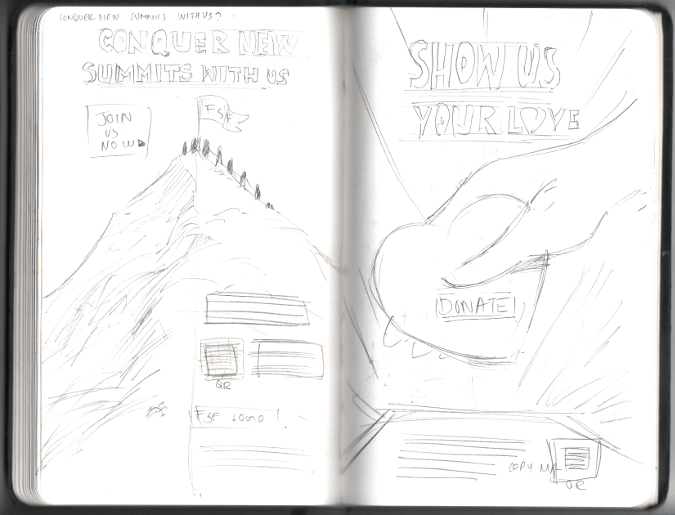 CONQUER NEW SUMMITS WITH US?
CONQUER NEW
SUMMITS WITH US
JOIN
US
NOW
FSF
QR
FSF LOGO !
SHOW US
YOUR LOVE
DONATE
COPY
QR